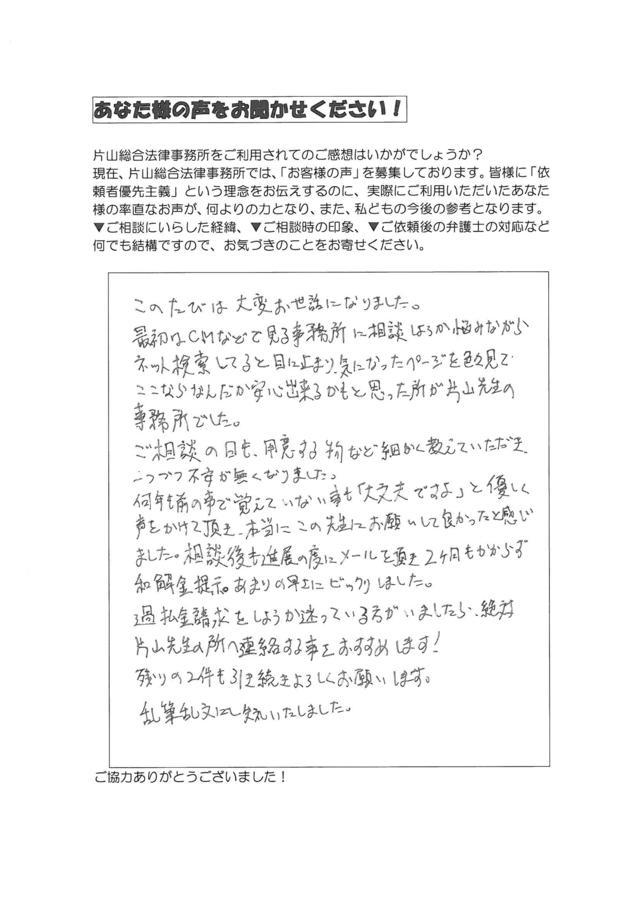 あなた様の声をお聞かせください！
片山総合法律事務所をご利用されてのご感想はいかがでしょうか？
現在、片山総合法律事務所では、「お客様の声」を募集しております。皆様に「依
頼者優先主義」という理念をお伝えするのに、実際にご利用いただいたあなた
様の率直なお声が、何よりの力となり、また、私どもの今後の参考となります。
▼ご相談にいらした経緯、▼ご相談時の印象、▼ご依頼後の弁護士の対応など
何でも結構ですので、お気づきのことをお寄せください。
このたびは大変お世話になりました。
最初はCMなどで見る事務所に相談しようか悩みながら
ネット検索してると目に止まり、気になったページを色々見て
ここならなんだか安心出来るかもと思った所が片山先生の
事務所でした。
ご相談の日も、用意する物など細かく教えていただき、
一つづつ不安が無くなりました。
何年も前の事で覚えていない事も「大丈夫ですよ」と優しく
声をかけて頂き、本当にこの先生にお願いして良かったと感じ
ました。相談後も進展の度にメールを頂き2ヶ月もかからず
和解金提示。あまりの早さにビックリしました。
過払金請求をしようか迷っている方がいましたら、絶対
片山先生の所へ連絡する事をおすすめします！
残りの2件も引き続きよろしくお願いします。
乱筆乱文にて失礼いたしました。
ご協力ありがとうございました！